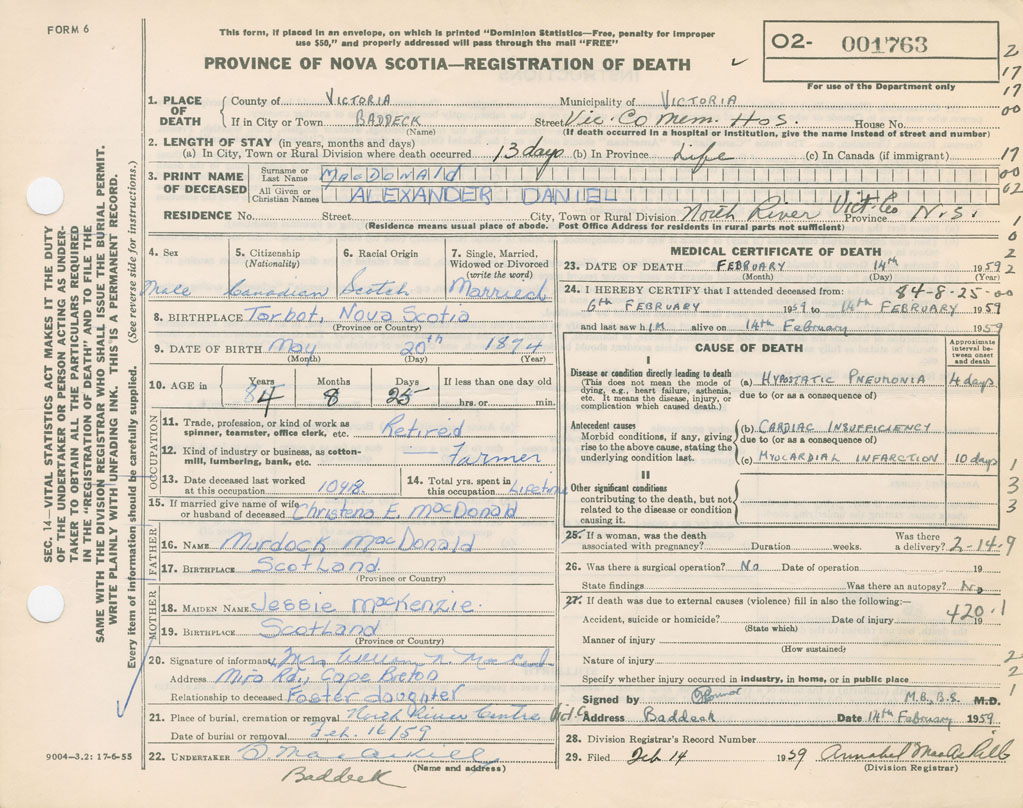 FORM 6
This form, if placed in an envelope, on which is printed "Dominion Statistics—Free, penalty for improper
use $50," and properly addressed will pass through the mail "FREE"
PROVINCE OF NOVA SCOTIA—REGISTRATION OF DEATH
02- 001763
For use of the Department only
2
17
17
00
17
00
02
1
0
2
2
SEC. 14—VITAL STATISTICS ACT MAKES IT THE DUTY
OF THE UNDERTAKER OR PERSON ACTING AS UNDER-
TAKER TO OBTAIN ALL THE PARTICULARS REQUIRED
IN THE "REGISTRATION OF DEATH" AND TO FILE THE
SAME WITH THE DIVISION REGISTRAR WHO SHALL ISSUE THE BURIAL PERMIT.
WRITE PLAINLY WITH UNFADING INK. THIS IS A PERMANENT RECORD.
Every item of information should be carefully supplied. (See reverse side for instructions.)
1. PLACE OF DEATH
County of VICTORIA Municipality of VICTORIA
If in City or Town BADDECK Street Vic. Co Mem. Hos. House No.
(Name) (If death occurred in a hospital or institution, give the name instead of street and number)
2. LENGTH OF STAY (in years, months and days)
(a) In City, Town or Rural Division where death occurred 13 days (b) In Province Life (c) In Canada (if immigrant)
3. PRINT NAME OF DECEASED
Surname or Last Name MACDONALD
All Given or Christian Names ALEXANDER DANIEL
RESIDENCE No. Street City, Town or Rural Division North River Vict. Co Province N.S.
(Residence means usual place of abode. Post Office Address for residents in rural parts not sufficient)
4. Sex 5. Citizenship (Nationality) 6. Racial Origin 7. Single, Married, Widowed or Divorced (write the word)
Male Canadian Scotch Married
8. BIRTHPLACE Tarbot, Nova Scotia
(Province or Country)
9. DATE OF BIRTH May 20th 1874
(Month) (Day) (Year)
10. AGE in Years Months Days If less than one day old
84 8 25 hrs. or min.
OCCUPATION
11. Trade, profession, or kind of work as
spinner, teamster, office clerk, etc. Retired
12. Kind of industry or business, as cotton-
mill, lumbering, bank, etc. — Farmer
13. Date deceased last worked
at this occupation 1948. 14. Total yrs. spent in
this occupation Lifetime
15. If married give name of wife
or husband of deceased Christena E. MacDonald
FATHER
16. NAME Murdock MacDonald
17. BIRTHPLACE Scotland
(Province or Country)
MOTHER
18. MAIDEN NAME Jessie MacKenzie.
19. BIRTHPLACE Scotland
(Province or Country)
20. Signature of informant Mrs William N. MacLeod
Address Mira Rd., Cape Breton
Relationship to deceased Foster daughter
21. Place of burial, cremation or removal North River Centre Vict. Co
Date of burial or removal Feb. 16/59
22. UNDERTAKER D. MacAskill
(Name and address)
Baddeck
9004—3.2: 17-6-55
MEDICAL CERTIFICATE OF DEATH
23. DATE OF DEATH FEBRUARY 14th 1959
(Month) (Day) (Year)
24. I HEREBY CERTIFY that I attended deceased from: 84-8-25-00
6th FEBRUARY 1959 to 14th FEBRUARY 1959
and last saw h IM alive on 14th February 1959
CAUSE OF DEATH
Approximate interval between onset and death
I
Disease or condition directly leading to death
(This does not mean the mode of
dying, e.g., heart failure, asthenia,
etc. It means the disease, injury, or
complication which caused death.)
(a) HYPOSTATIC PNEUMONIA 4 days
due to (or as a consequence of)
Antecedent causes
Morbid conditions, if any, giving
rise to the above cause, stating the
underlying condition last.
(b) CARDIAC INSUFFICIENCY
due to (or as a consequence of)
(c) MYOCARDIAL INFARCTION 10 days
II
Other significant conditions
contributing to the death, but not
related to the disease or condition
causing it.
1
3
3
25. If a woman, was the death
associated with pregnancy? Duration weeks. Was there
a delivery? 2-14-9
26. Was there a surgical operation? No Date of operation 19
State findings Was there an autopsy? No
27. If death was due to external causes (violence) fill in also the following:—
Accident, suicide or homicide? Date of injury 19
(State which)
420.1
Manner of injury
(How sustained)
Nature of injury
Specify whether injury occurred in industry, in home, or in public place
2
2
1
Signed by M.B., B.S. M.D.
Address Baddeck Date 14th February 1959
28. Division Registrar's Record Number
29. Filed Feb 14 1959 Annabel MacAskill
(Division Registrar)